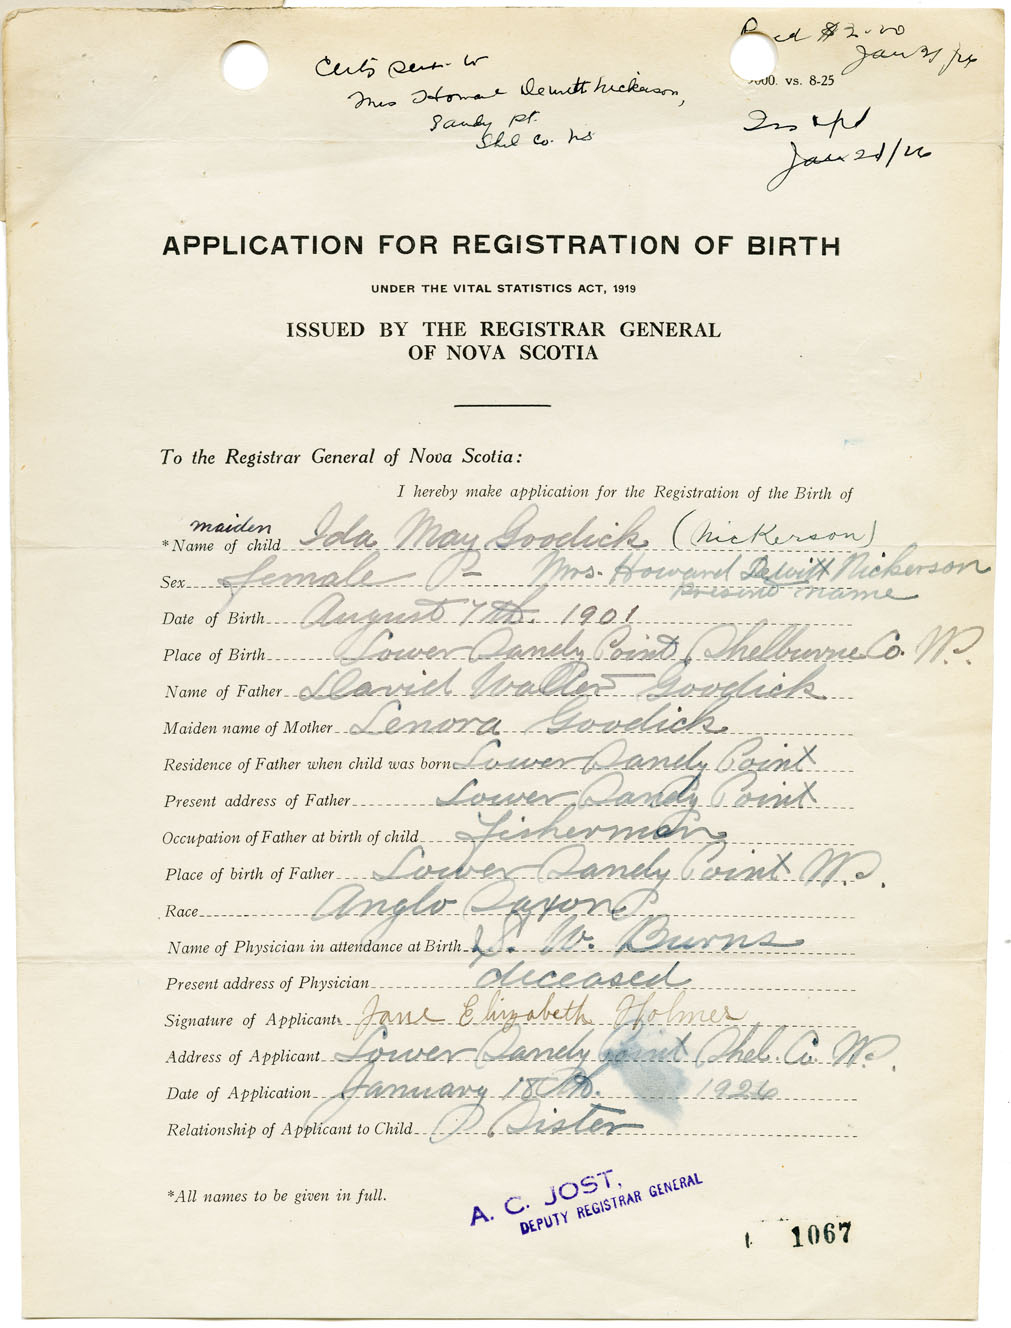 Certs sent to
Mrs Howard Dewitt Nickerson,
Sandy Pt.
Shel Co. NS
Recd $2.00
Jan 21/26
000. vs. 8-25
Jan 21/26
APPLICATION FOR REGISTRATION OF BIRTH
UNDER THE VITAL STATISTICS ACT, 1919
ISSUED BY THE REGISTRAR GENERAL
OF NOVA SCOTIA
To the Registrar General of Nova Scotia:
I hereby make application for the Registration of the Birth of
maiden
*Name of child Ida May Goodick (Nickerson)
Sex female Mrs. Howard Dewitt Nickerson
present name
Date of Birth August 7th. 1901
Place of Birth Lower Sandy Point, Shelburne Co. N.S.
Name of Father David Walter Goodick
Maiden name of Mother Lenora Goodick
Residence of Father when child was born Lower Sandy Point
Present address of Father Lower Sandy Point
Occupation of Father at birth of child fisherman
Place of birth of Father Lower Sandy Point N.S.
Race Anglo Saxon
Name of Physician in attendance at Birth S. W. Burns
Present address of Physician deceased
Signature of Applicant Jane Elizabeth Holmes
Address of Applicant Lower Sandy Point Shel. Co. N.S.
Date of Application January 18th. 1926
Relationship of Applicant to Child Sister
*All names to be given in full.
A. C. JOST,
DEPUTY REGISTRAR GENERAL
1067